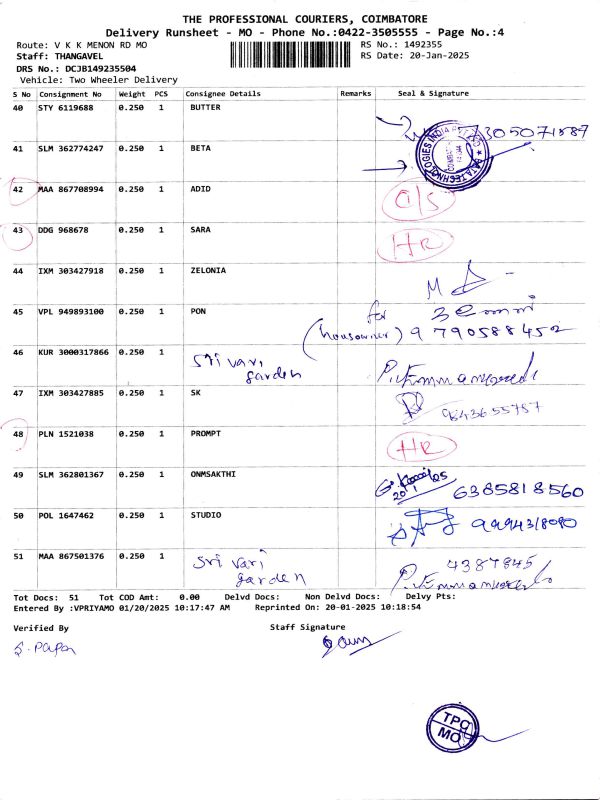 THE PROFESSIONAL COURIERS, COIMBATORE
Delivery Runsheet - MO - Phone No.:0422-3505555 - Page No.:4
Route: V K K MENON RD MO RS No.: 1492355
Staff: THANGAVEL RS Date: 20-Jan-2025
DRS No.: DCJB149235504
Vehicle: Two Wheeler Delivery
S No Consignment No Weight PCS Consignee Details Remarks Seal & Signature
40 STY 6119688 0.250 1 BUTTER 7305071587
41 SLM 362774247 0.250 1 BETA
42 MAA 867708994 0.250 1 ADID
43 DDG 968678 0.250 1 SARA HR
44 IXM 303427918 0.250 1 ZELONIA
45 VPL 949893100 0.250 1 PON for
(housowner) 9790588452
46 KUR 3000317866 0.250 1 Sri vari
garden
47 IXM 303427885 0.250 1 SK 9843655757
48 PLN 1521038 0.250 1 PROMPT HR
49 SLM 362801367 0.250 1 ONMSAKTHI 6385818560
50 POL 1647462 0.250 1 STUDIO
51 MAA 867501376 0.250 1 Sri vari 4387845
garden
Tot Docs: 51 Tot COD Amt: 0.00 Delvd Docs: Non Delvd Docs: Delvy Pts:
Entered By :VPRIYAMO 01/20/2025 10:17:47 AM Reprinted On: 20-01-2025 10:18:54
Verified By Staff Signature
S. Papa
TPC
MO